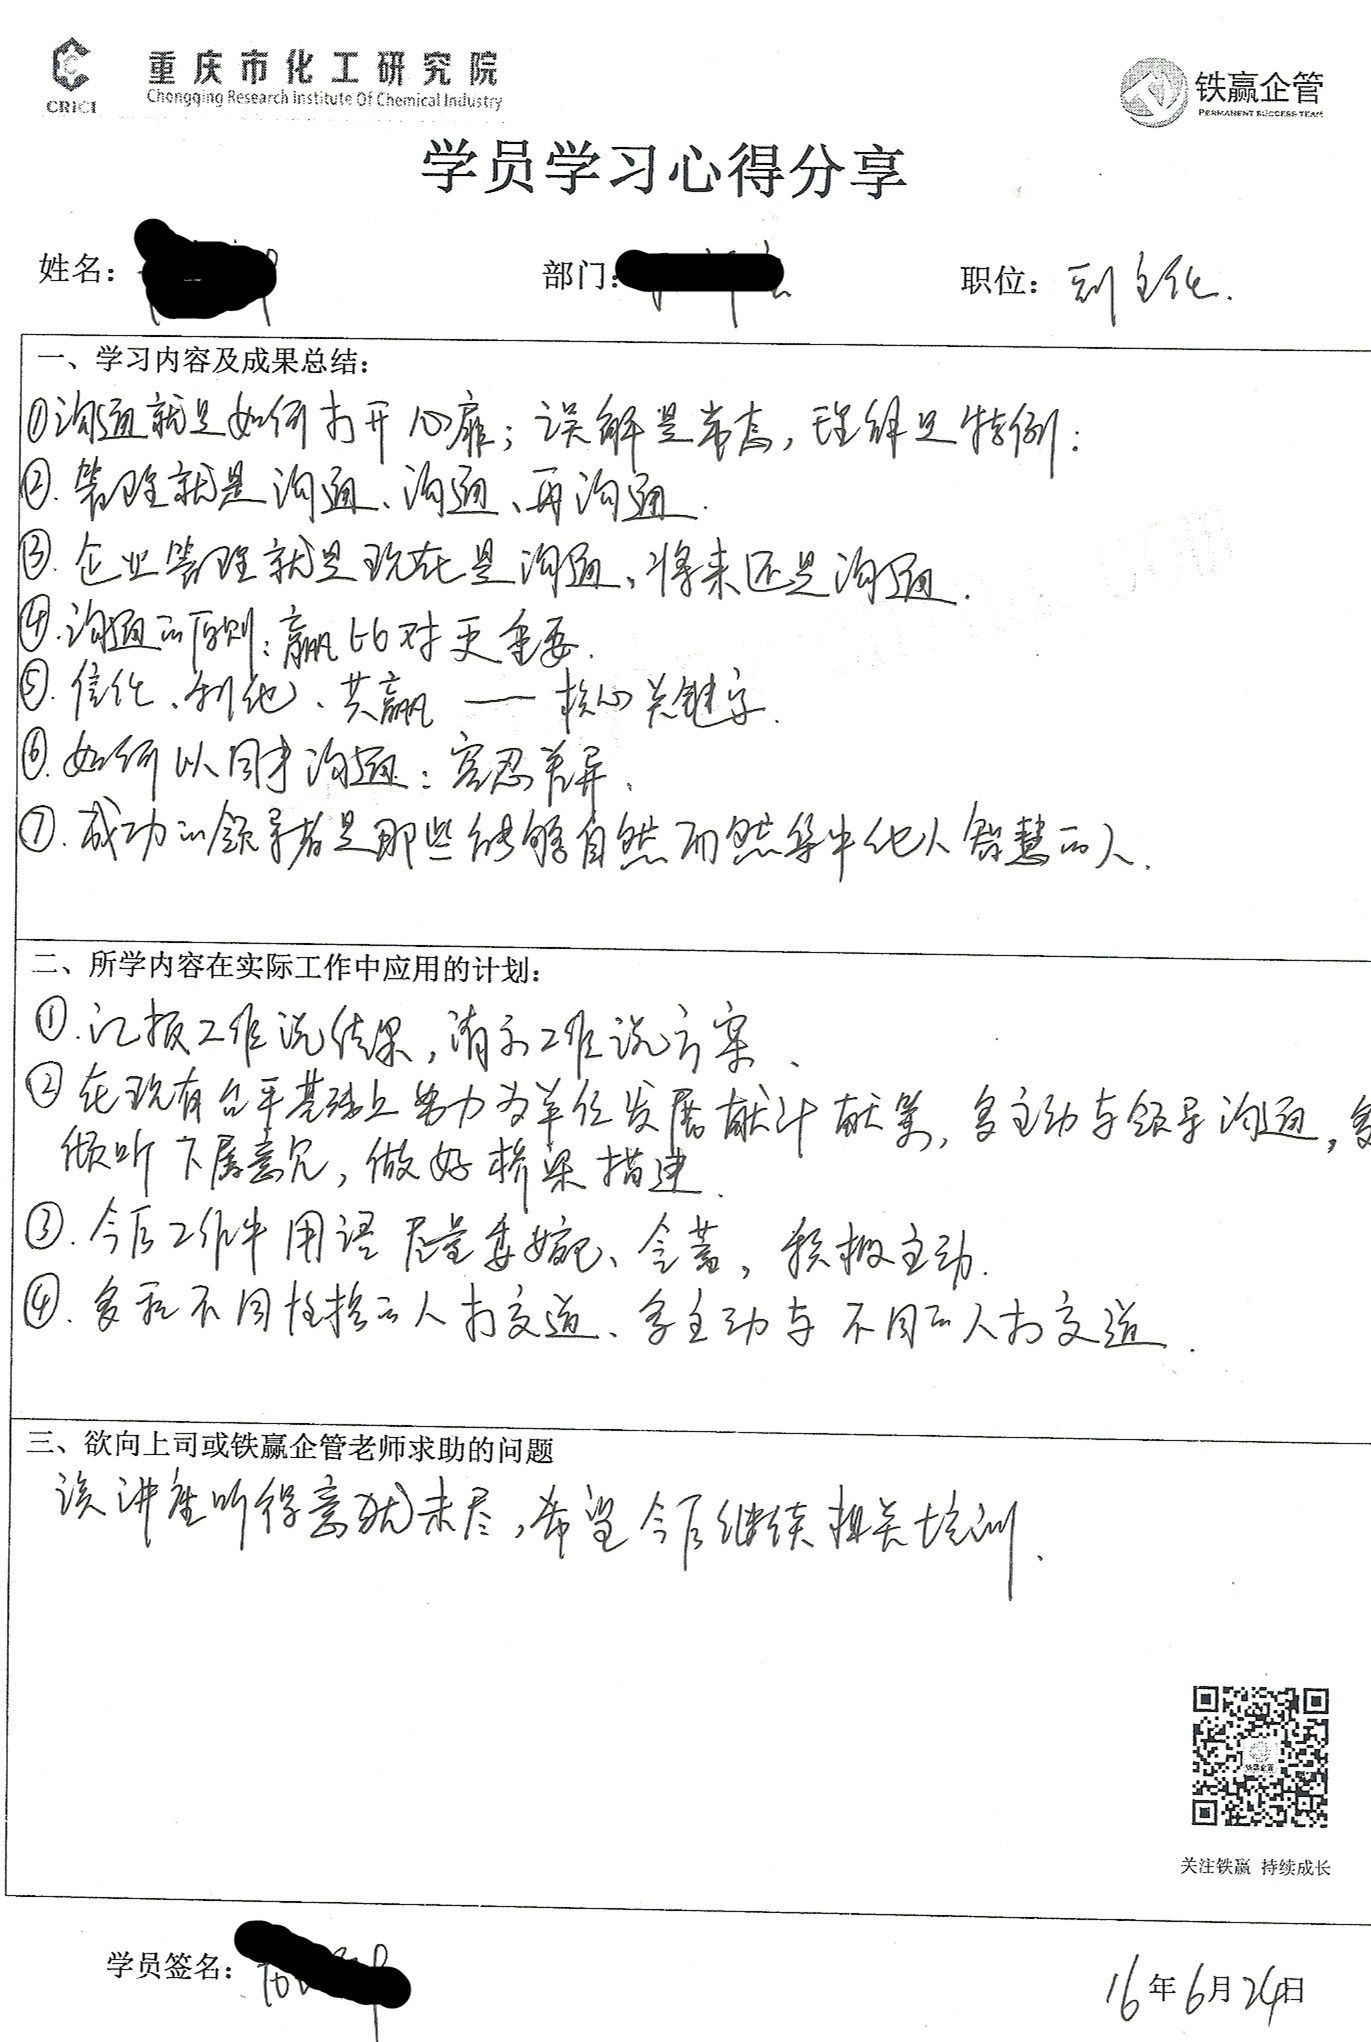 CRICI
重庆市化工研究院
Chongqing Research Institute Of Chemical Industry
铁赢企管
PERMANENT SUCCESS TEAM
学员学习心得分享
姓名：
部门：
职位：副主任.
一、学习内容及成果总结：
①沟通就是如何打开心扉；误解是常态，理解是特例；
②. 管理就是沟通、沟通、再沟通.
③. 企业管理就是现在是沟通、将来还是沟通.
④. 沟通的原则：赢比对更重要.
⑤. 信任、利他、共赢 —— 核心关键字.
⑥. 如何认同才沟通：容忍差异.
⑦. 成功的领导者是那些能够自然而然集中他人智慧的人.
二、所学内容在实际工作中应用的计划：
①. 汇报工作说结果，请示工作说方案、
② 在现有台平基础上努力为单位发展献计献策，多主动与领导沟通，多
倾听下属意见，做好桥梁搭建.
③. 今后工作中用语尽量委婉、含蓄，积极主动.
④. 多和不同性格的人打交道、多主动与不同的人打交道.
三、欲向上司或铁赢企管老师求助的问题
该讲座听得意犹未尽，希望今后继续相关培训.
铁赢企管
关注铁赢 持续成长
学员签名：
16年6月24日